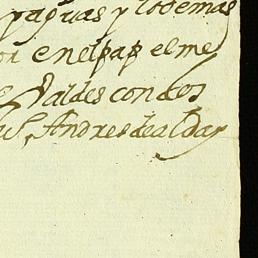 paguas y lodemas
enelpap elme
Valdes condos
Andres dealday